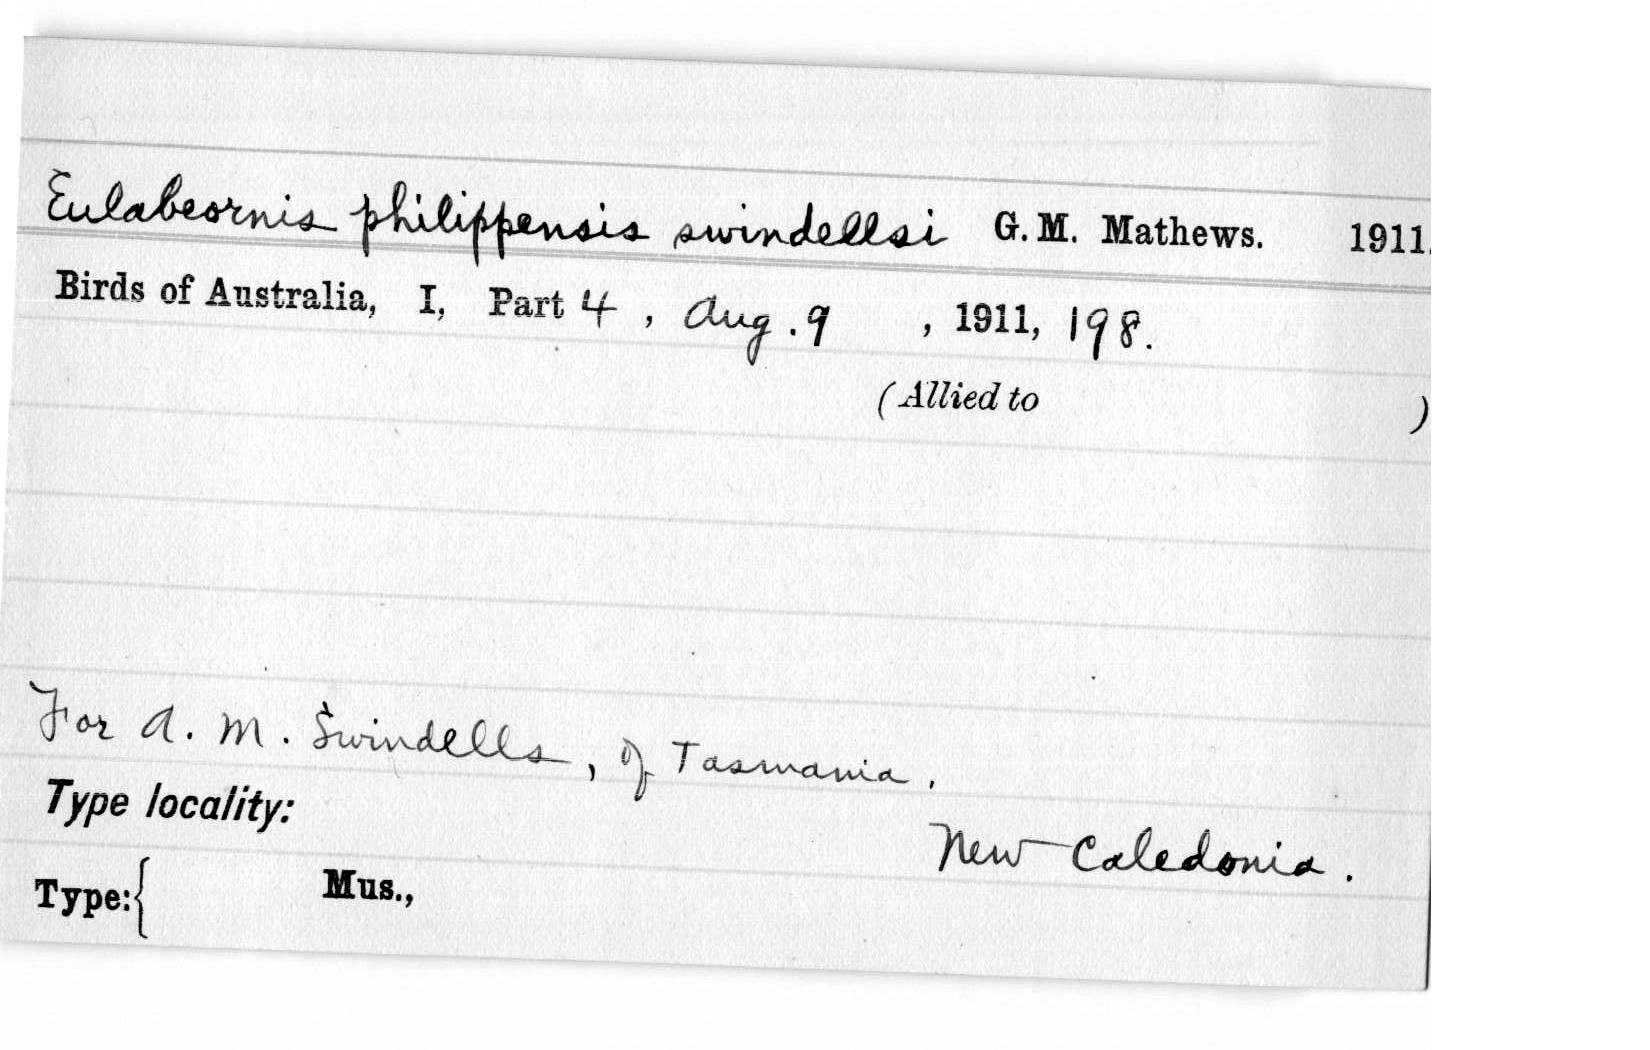 Eulabeornis philippensis swindellsi G. M. Mathews. 1911.
Birds of Australia, I, Part 4, Aug. 9, 1911, 198.
(Allied to )
For A. M. Swindells, of Tasmania.
Type locality:
New Caledonia.
Type:{ Mus.,